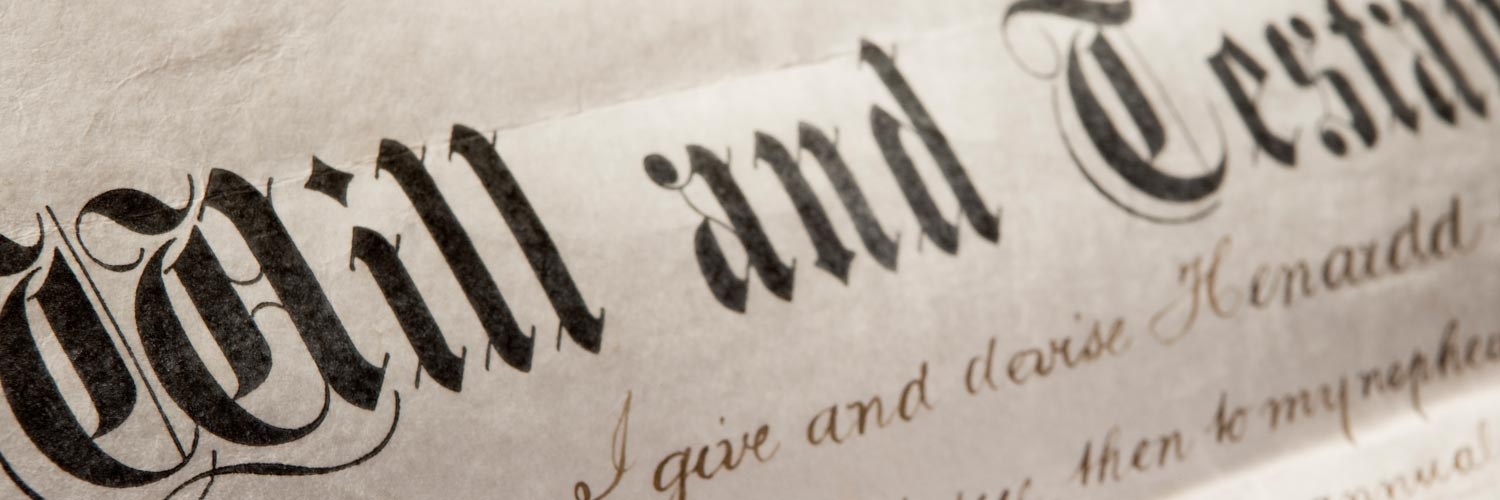 Will and Testam
I give and devise Henardd
then to my nephew
annual